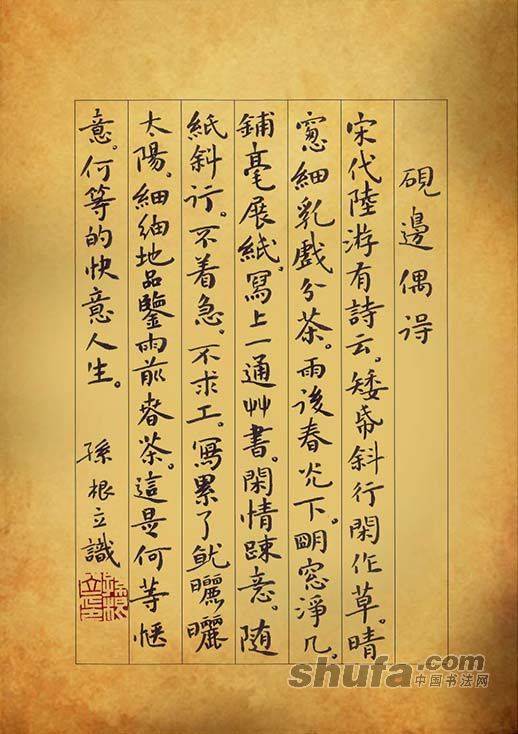 硯邊偶得
宋代陸游有詩云。矮帋斜行閑作草。晴
窓細乳戲分茶。雨後春光下。朙窓淨几。
鋪毫展紙。寫上一通艸書。閑情踈意。随
紙斜行。不着急。不求工。寫累了就曬曬
太陽。細細地品鑒雨前春茶。這是何等愜
意。何等的快意人生。
孫根立識
shufa.com
中国书法网